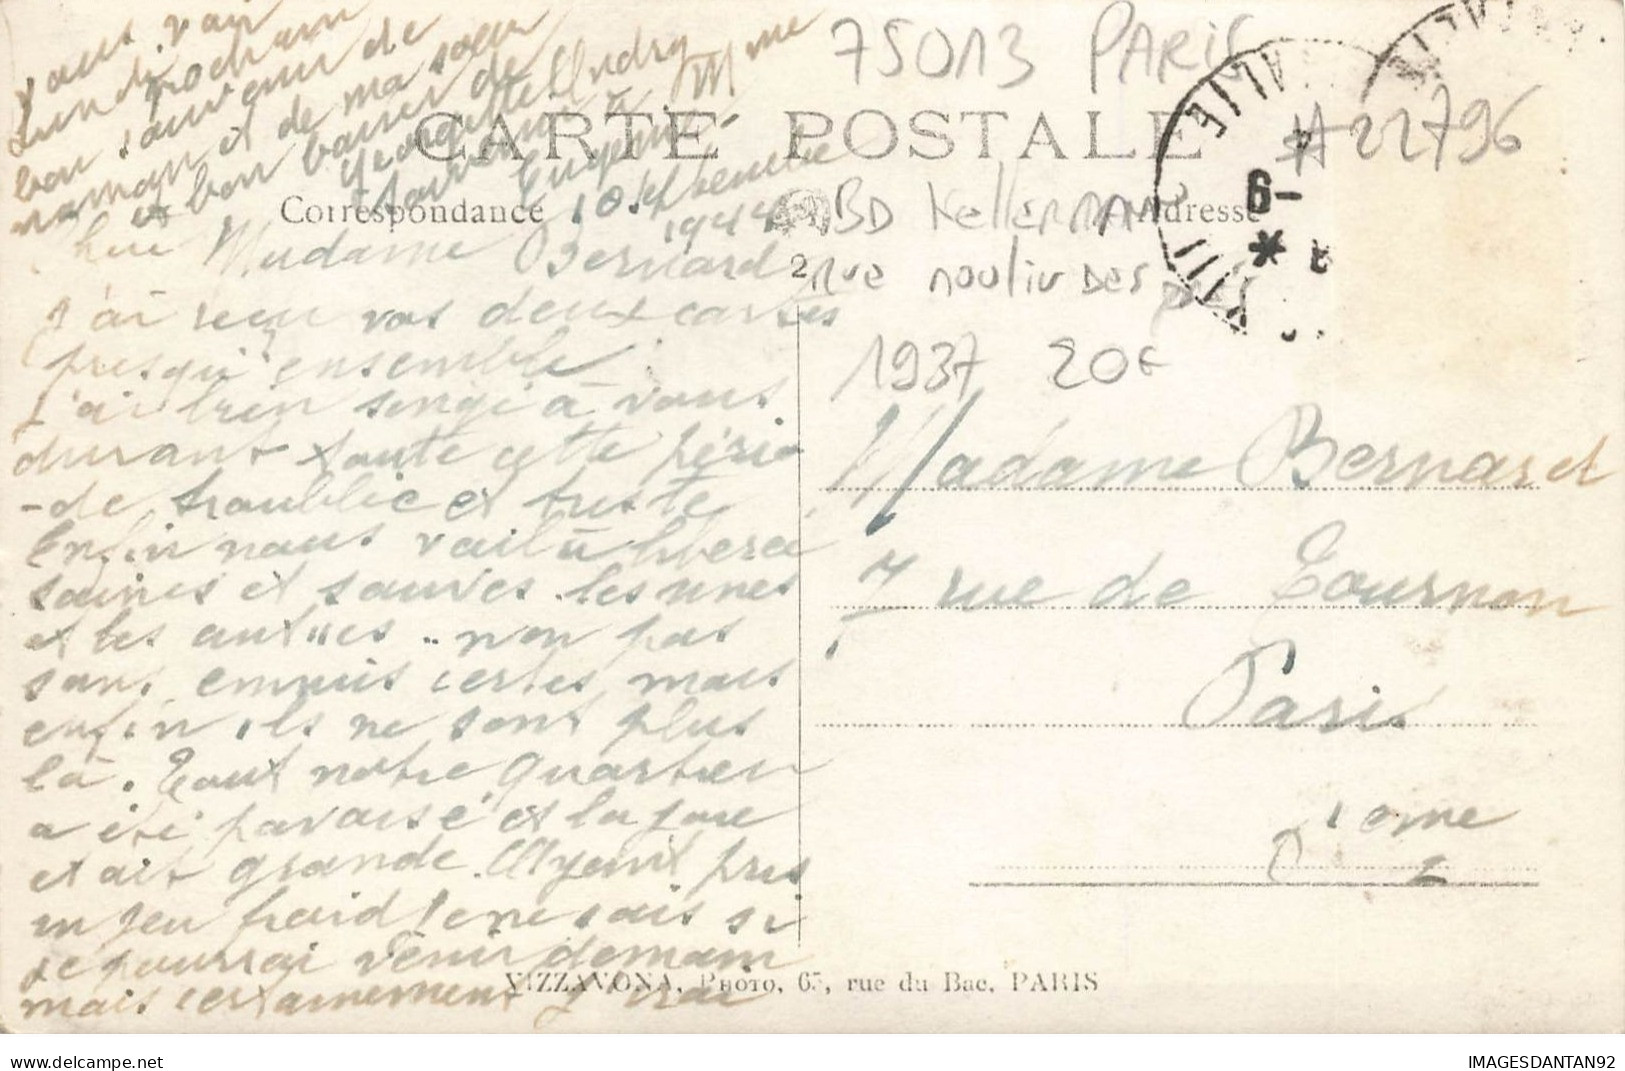 vous voir
Lundi prochain
bon souvenir de
maman et de ma soeur
et bon baiser de
Georgette Audry
Souvenir à Mme
Eugénie
75013 PARIS
#22796
CARTE POSTALE
Correspondance
Adresse
BD Kellermann
2 rue
1937 20€
10 septembre
1944
Chere Madame Bernard
J'ai reçu vos deux cartes
presqu'ensemble
J'ai bien songé à vous
durant toute cette pério
-de troublée et triste
Enfin nous voilà
saines et sauves les unes
et les autres .. non pas
sans ennuis certes mais
enfin ils ne sont plus
là. Tout notre quartier
a été pavoisé et la joie
était grande. Ayant pris
un peu froid je ne sais si
je pourrai venir demain
mais certainement j'irai
Madame Bernard
7 rue de Tournon
Paris
6eme
VIZZAVONA, PHOTO, 65, rue du Bac, PARIS
delcampe.net
IMAGESDANTAN92